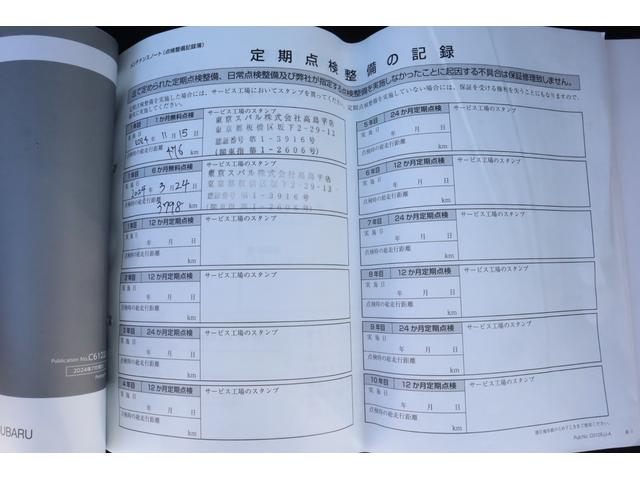 メンテナンスノート(点検整備記録簿)
定期点検整備の記録
法で定められた定期点検整備、日常点検整備及び弊社が指定する点検整備を実施しなかったことに起因する不具合は保証修理致しません。
定期点検整備を実施した場合には、サービス工場においてスタンプを貰ってください。
定期点検整備を実施していない場合には、保証を受ける権利を失うことにもなりますので、
1か月無料点検
サービス工場のスタンプ
実施日
2024年 11月 15日
点検時の総走行距離
476 km
東京スバル株式会社高島平店
東京都板橋区坂下2-29-12
認証番号 第1-3916号
(関東指第1-2606号)
6か月無料点検
サービス工場のスタンプ
実施日
年 3月 24日
点検時の総走行距離
3798 km
東京スバル株式会社高島平店
東京都板橋区坂下2-29-12
認証番号 第1-3916号
(関東指第1-2606号)
1年目 12か月定期点検
サービス工場のスタンプ
実施日
年 月 日
点検時の総走行距離
km
2年目 12か月定期点検
サービス工場のスタンプ
実施日
年 月 日
点検時の総走行距離
km
3年目 24か月定期点検
サービス工場のスタンプ
実施日
年 月 日
点検時の総走行距離
km
4年目 12か月定期点検
サービス工場のスタンプ
実施日
年 月 日
点検時の総走行距離
km
5年目 24か月定期点検
サービス工場のスタンプ
実施日
年 月 日
点検時の総走行距離
km
6年目 12か月定期点検
サービス工場のスタンプ
実施日
年 月 日
点検時の総走行距離
km
7年目 24か月定期点検
サービス工場のスタンプ
実施日
年 月 日
点検時の総走行距離
km
8年目 12か月定期点検
サービス工場のスタンプ
実施日
年 月 日
点検時の総走行距離
km
9年目 24か月定期点検
サービス工場のスタンプ
実施日
年 月 日
点検時の総走行距離
km
10年目 12か月定期点検
サービス工場のスタンプ
実施日
年 月 日
点検時の総走行距離
km
Publication No.
2024年7月
UBARU